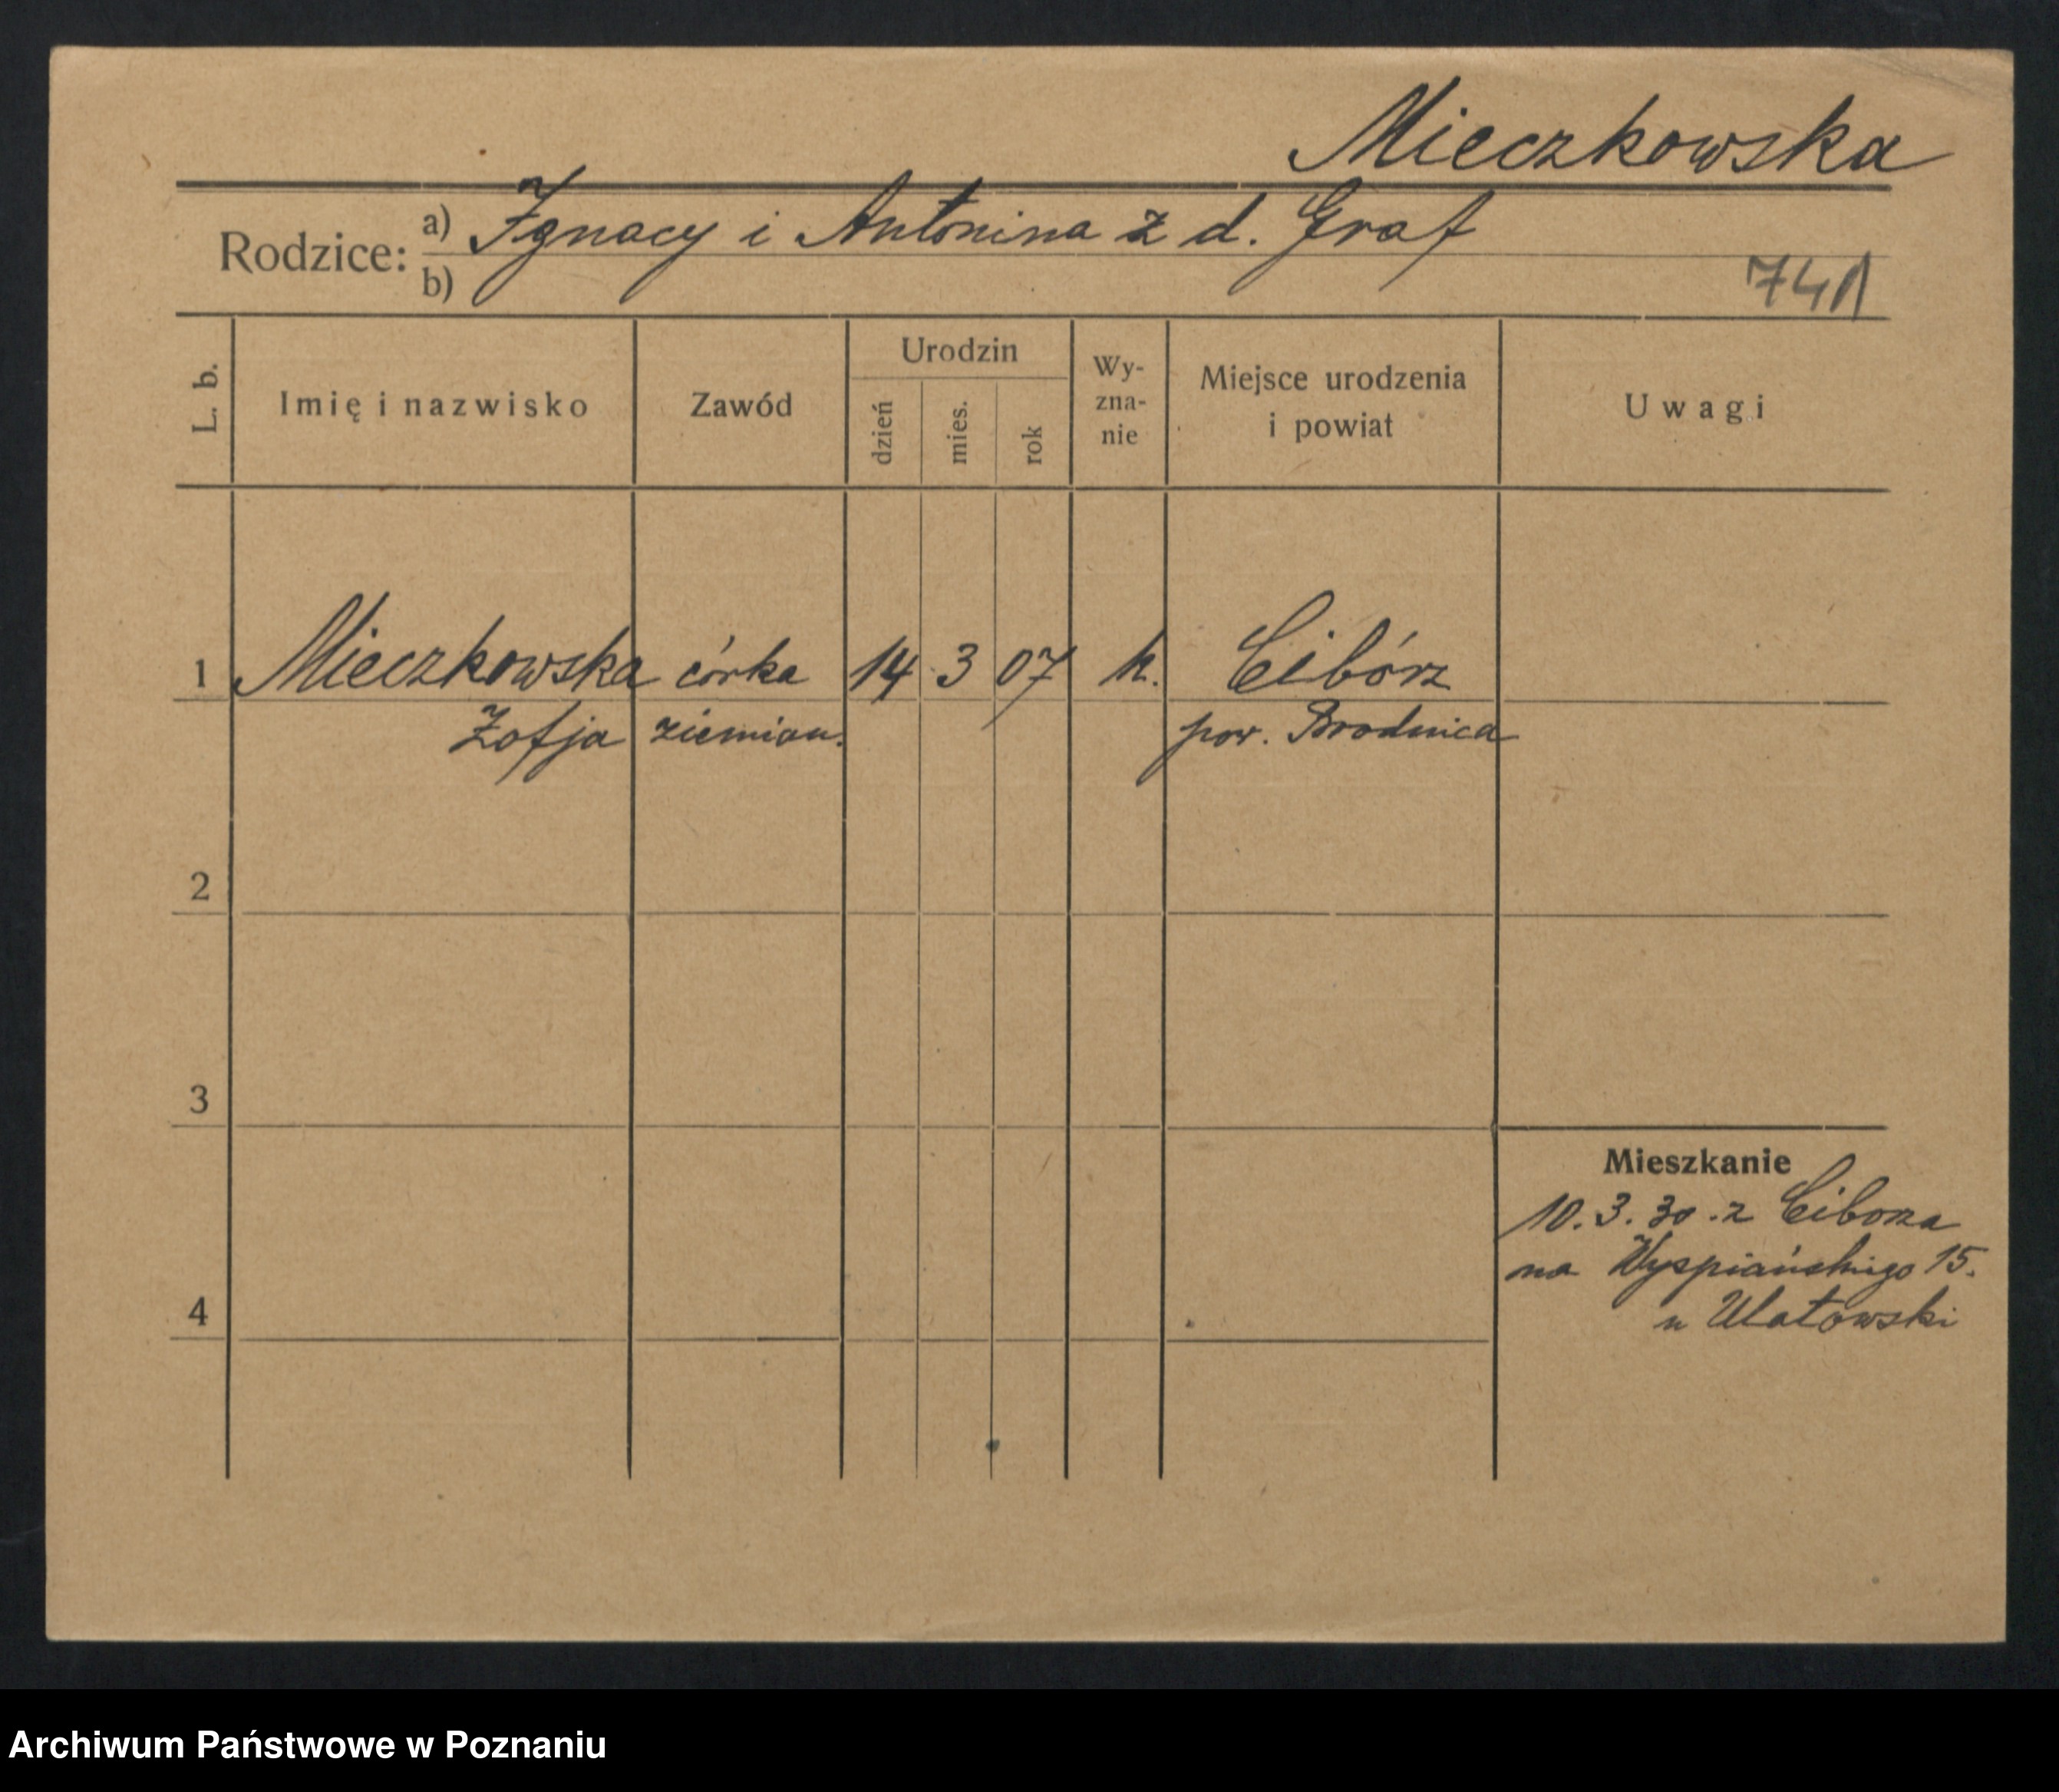 Mieczkowska
Rodzice: a) Ignacy i Antonina z d. Graf
b)
741
L. b. Imię i nazwisko Zawód Urodzin dzień mies. rok Wy-zna-nie Miejsce urodzenia i powiat Uwagi
1 Mieczkowska córka 14 3 07 k. Cibórz
Zofja ziemian. pow. Brodnica
2
3
Mieszkanie
10.3.30. z Ciborza
na Wyspiańskiego 15.
4
u Ulatowski
Archiwum Państwowe w Poznaniu